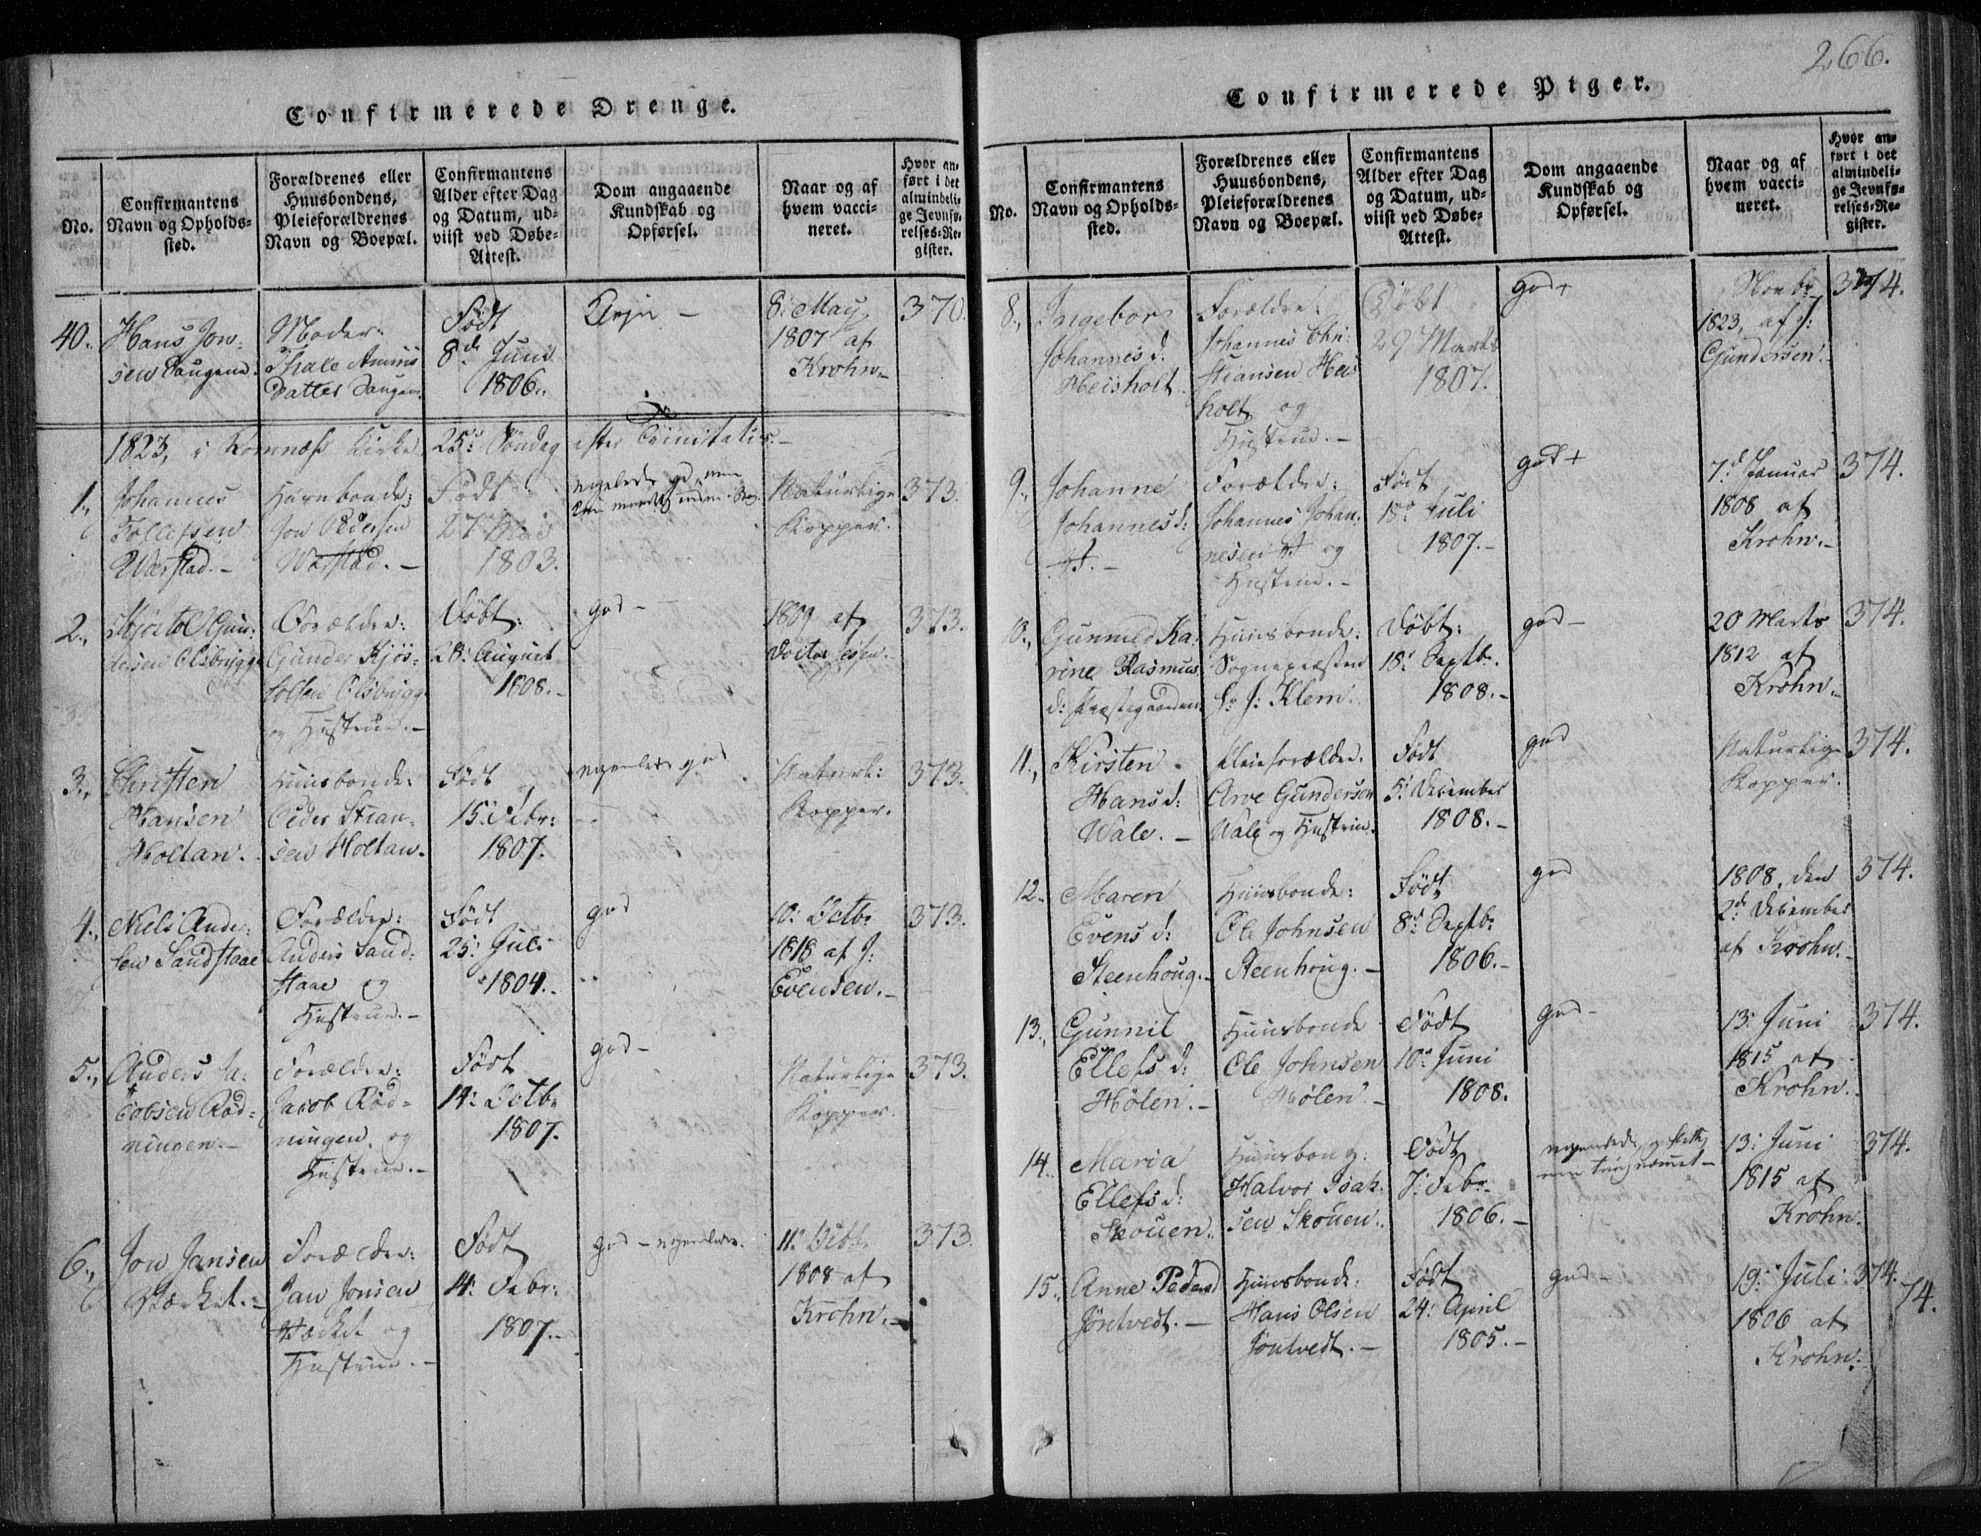 266.
Confirmerede Drenge.
No.
Confirmantens
Navn og Opholds-
sted.
Forældrenes eller
Huusbondens,
Pleieforældrenes
Navn og Boepæl.
Confirmantens
Alder efter Dag
og Datum, ud-
viist ved Døbe-
Attest.
Dom angaaende
Kundskab og
Opførsel.
Naar og af
hvem vacci-
neret.
Hvor an-
ført i det
almindeli-
ge Jevnfø-
relses-Re-
gister.
40.
Hans Jon-
sen
Moder:
Datter
Født
8de Juni
1806.
8: May
1807 af
Krohn.
370.
1823, i Kirke 25de Søndag efter Trinitatis.
1.,
Johannes
Huusbonde:
Jon Pedersen
Født
27 Mai
1803.
Naturlige
Kopper.
373.
2.,
Forældre:
Gunder
og Hustrue.
Døbt:
28: August
1808.
god
1809 af
Doctor
373.
3.,
Christen
Hansen
Holtan.
Huusbonde:
Peder Stian-
sen Holtan.
Født
15: Febr:
1807.
god
Naturl:
Kopper.
373.
4.,
Niels Ander-
sen Sandstaae
Forældre:
Anders Sand-
staae og
Hustrue.
Født
25: Juli
1804.
god
10: Octbr
1818 af J:
Evensen.
373.
5.,
Anders Ja-
cobsen Rød-
ningen.
Forældre:
Jacob Rød-
ningen og
Hustrue.
Født
14: Octbr
1807.
god
Naturlige
Kopper.
373.
6.,
Jon Jansen
Værket.
Forældre:
Jan Jonsen
Værket og
Hustrue.
Født
14: Febr:
1807.
god
11:
1808 af
Krohn.
373.
Confirmerede Piger.
No.
Confirmantens
Navn og Opholds-
sted.
Forældrenes eller
Huusbondens,
Pleieforældrenes
Navn og Boepæl.
Confirmantens
Alder efter Dag
og Datum, ud-
viist ved Døbe-
Attest.
Dom angaaende
Kundskab og
Opførsel.
Naar og af
hvem vacci-
neret.
Hvor an-
ført i det
almindeli-
ge Jevnfø-
relses-Re-
gister.
8.,
Ingebor
Johannes d:
Heisholt
Forældre:
Johannes Chri-
stiansen Heis-
holt og
Hustrue.
Døbt
29 Marts
1807.
god +
Novbr
1823, af J:
Gundersen.
374.
9.,
Johanne
Johannes d:
Forældre:
Johannes Johan-
nesen og
Hustrue.
Født
18: Juli
1807.
god +
7d Januar
1808 af
Krohn.
374.
10.,
Gunnild Ka-
rine Rasmus
d: Præstegaarden.
Huusbonde:
Sognepræsten
Hr J: Klem.
Døbt:
18: Septbr.
1808.
god
20 Marts
1812 af
Krohn.
374.
11.,
Kirsten
Hans d:
Wale.
Pleieforældre:
Arve Gundersen
Wale og Hustrue.
Født
5: December
1808.
god
Naturlige
Kopper.
374.
12.
Maren
Evens d:
Steenhoug.
Huusbonde:
Ole Johnsen
Steenhoug.
Født
8: Septbr
1806.
god
1808, den
2de December
af Krohn.
374.
13.,
Gunnil
Ellefs d:
Hølen.
Huusbonde
Ole Johnsen
Hølen.
Født
10: Juni
1808.
god
13: Juni
1815 af
Krohn.
374.
14.
Maria
Ellefs d:
Skouen.
Huusbond:
Halvor Isak-
sen Skouen.
Født
7: Febr.
1806.
13: Juni
1815 af
Krohn.
374.
15.,
Anne Peders d
Jøntvedt.
Huusbonde:
Hans Olsen
Jøntvedt.
Født
24: April
1805.
god
19: Juli
1806 af
Krohn.
374.
74.